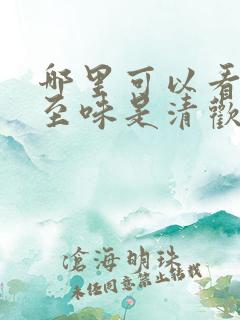 哪里可以看
至味是清歡
滄海明珠
未经同意禁止转载